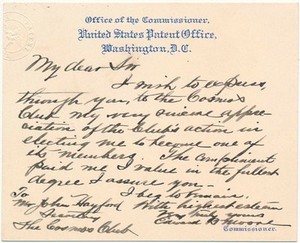 Office of the Commissioner,
United States Patent Office,
Washington, D.C.
My dear Sir
I wish to express
through you, to the Cosmos
Club my very sincere appre-
ciation of the Club's action in
electing me to become one of
its members. The compliment
paid me I value in the fullest
degree I assure you.
I beg to remain,
To With highest esteem
Mr John Hayford Very truly yours
Edward B Moore
The Cosmos Club Commissioner.